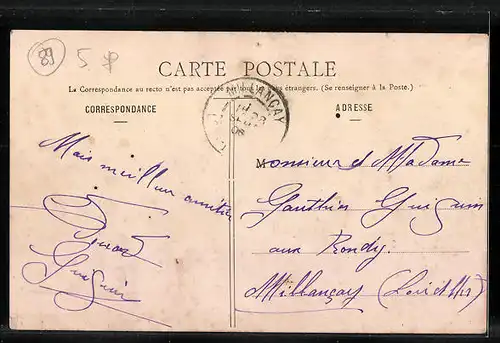 89
5
CARTE POSTALE
La Correspondance au recto n'est pas acceptée par tous les pays étrangers. (Se renseigner à la Poste.)
CORRESPONDANCE
ADRESSE
MILLANÇAY
06
Mais meilleur amitiés
Guignin
Monsieur et Madame
Gauthin Guignin
aux Rondy
Millançay (Loir et Cher)